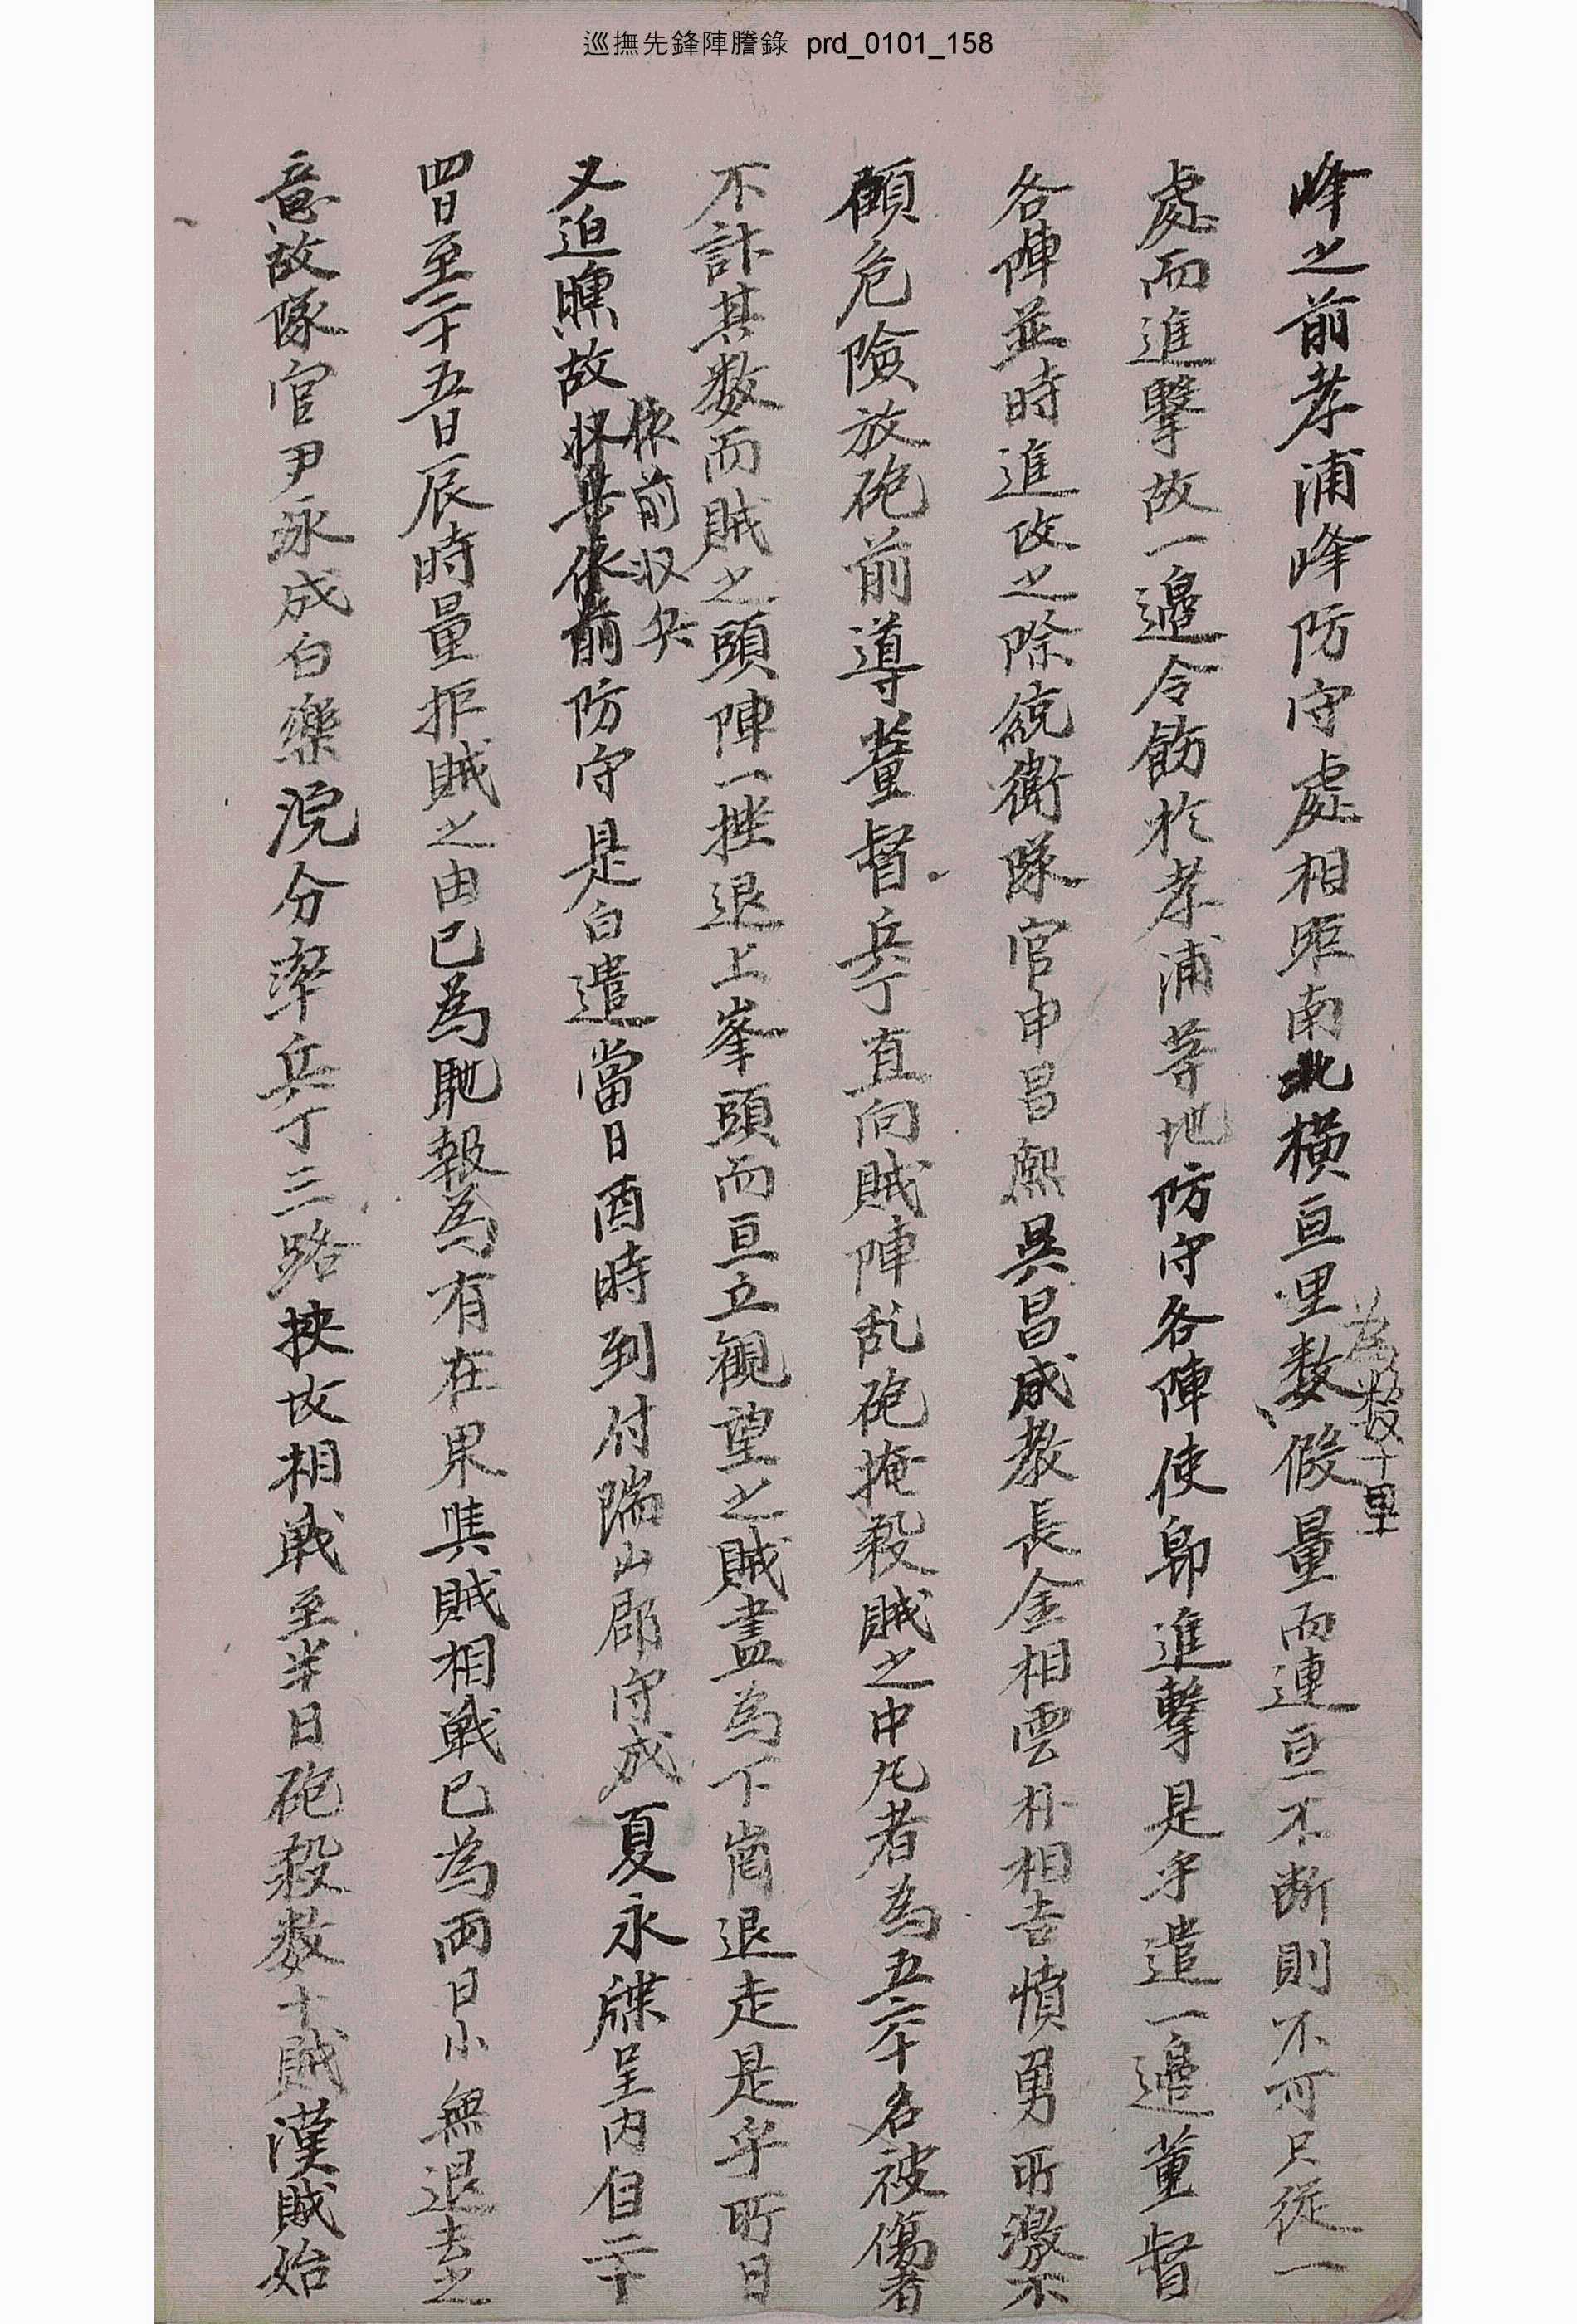 巡撫先鋒陣謄錄 prd_0101_158
峰之前孝浦峰防守處相距南北橫亘里数假量而連亘不断則不可只従一
為数十里
處而進擊故一邊令飭於孝浦等地防守各陣使即進擊是乎遣一邊董督
各陣並時進攻之除統衛隊官申昌熙吳昌成教長金相雲朴相吉憤勇所激不
顧危險放砲前導董督兵丁直向賊陣乱砲掩殺賊之中丸者為五六十名被傷者
不計其数而賊之頭陣一挫退上峯頭而亘立觀望之賊盡為下崗退走是乎所日
又迫曛故収兵依前防守是白遣當日酉時到付瑞山郡守成夏永牒呈内自二十
依前収兵
四日至二十五日辰時量拒賊之由已為馳報為有在果與賊相戦已為両日小無退去之
意故隊官尹泳成白樂浣分率兵丁三路挾攻相戦至半日砲殺数十賊漢賊始